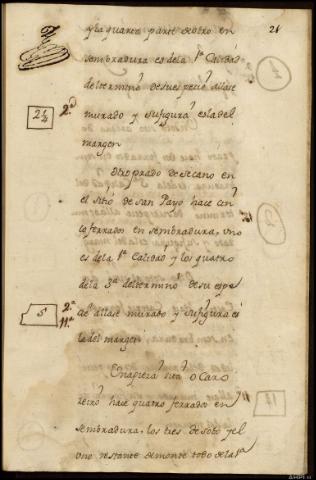 21
y la quarta parte de otro en
sembradura es dela 1ª Calidad
del termino de su especie allase
murado y su figura es la del
margen
2 1/4
2ª
Otro prado de secano en
el sitio de San Payo hace cin
co ferrados en sembradura, uno
es dela 1ª Calidad y los quatro
dela 3ª del termino de su espe
cie allase murado y su figura es
la del margen
5
2ª
11ª
Una pieza sita o Caro
hace quatro ferrados en
sembradura, los tres de soto y el
uno restante de monte todo de la 1ª